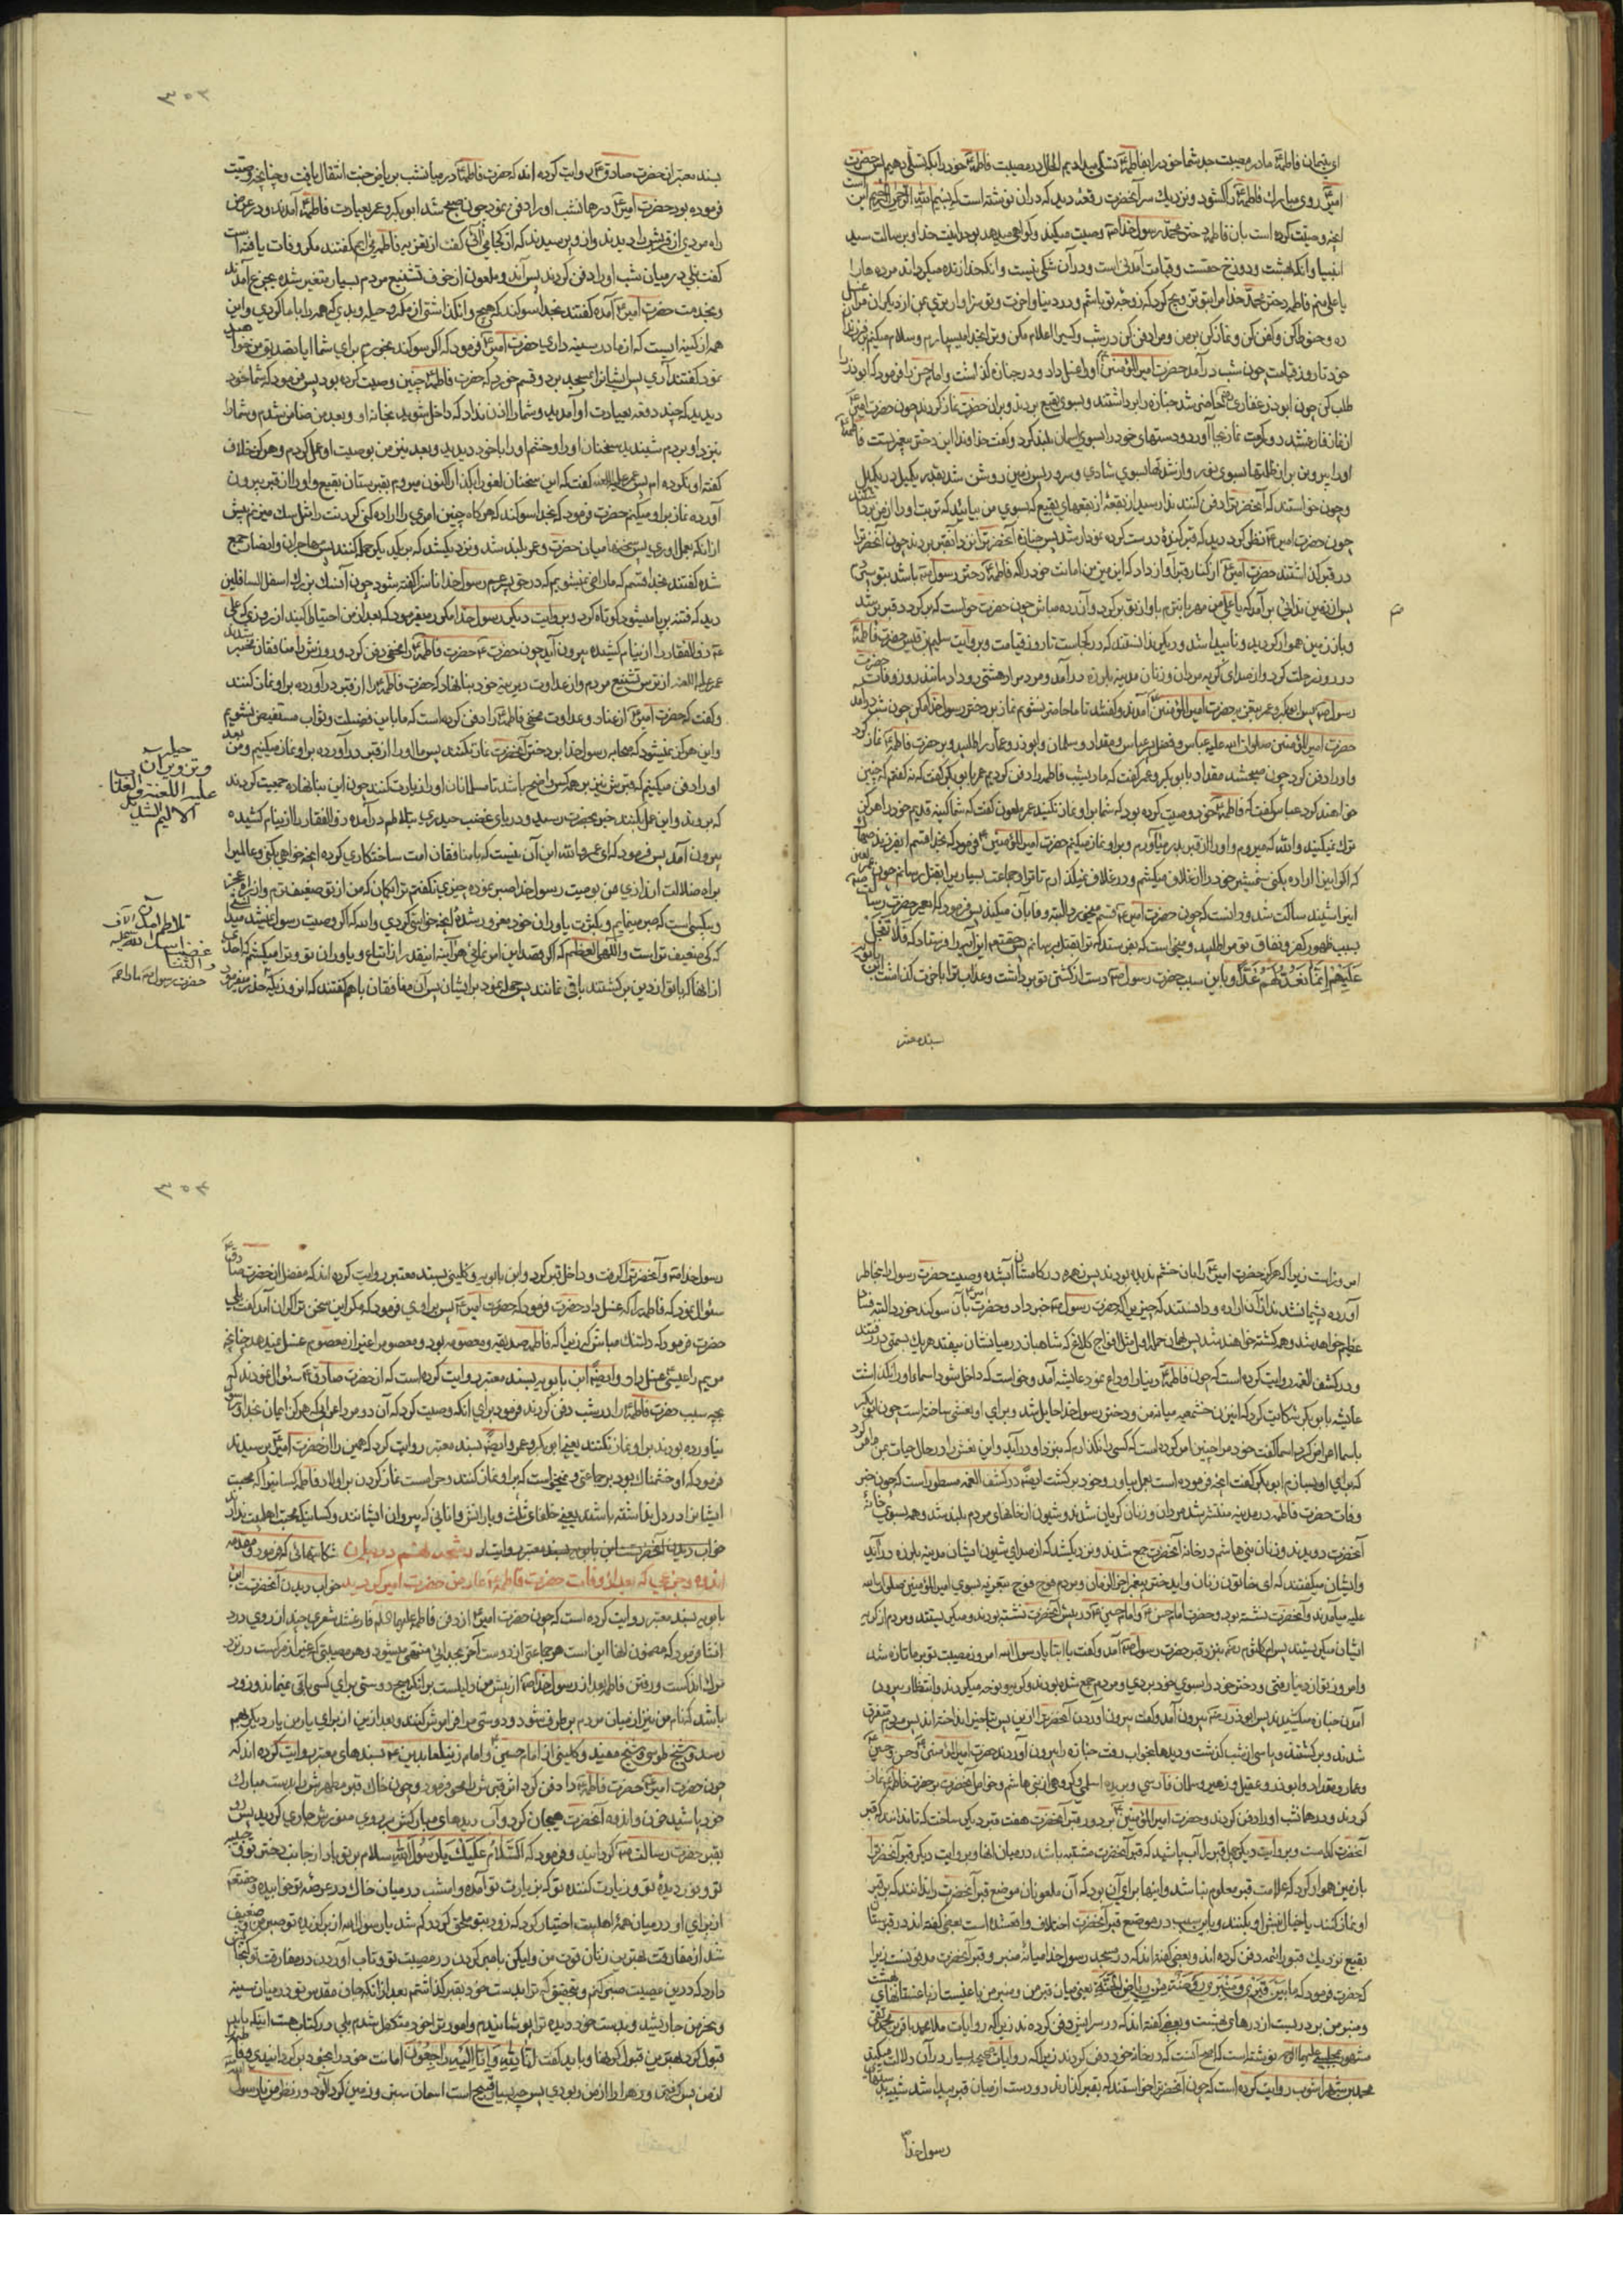 ای یتیمان فاطمه مادر مصیبت جد شما خود را بفاطمه تسلی میدادیم الحال در مصیبت فاطمه خود را بکه تسلی دهیم پس حضرت
امیر روی مبارک فاطمه را کشود و نزدیک سر آنحضرت رقعه دید که در آن نوشته است که بسم الله الرحمن الرحیم این است
آنچه وصیت کرده است بآن فاطمه دختر محمد رسول خدا وصیت میکند و گواهی میدهد بوحدانیت خدا و برسالت سید
انبیا و آنکه بهشت و دوزخ حقست و قیامت آمدنی است و در آن شکی نیست و آنکه خدا زنده میکرداند مرده ها را
یا علی منم فاطمه دختر محمد خدا مرا بتو تزویج کرد که زوجه تو باشم در دنیا و آخرت و تو سزاوارتری بمن از دیکران مرا غسل
ده و حنوط کن و کفن کن و نماز کن بر من و مرا دفن کن در شب و کسیرا اعلام مکن و ترا بخدا میسپارم و سلام میکنم فرزندان
خود تا روز قیامت چون شب درآمد حضرت امیرالمؤمنین او را غسل داد و در جنازه کذاشت و امام حسن را فرمود که ابوذر را
طلب کن چون ابوذر غفاری حاضر شد جنازه را برداشتند و بسوی بقیع بردند و بر آن حضرت نماز کردند چون حضرت امیر
از نماز فارغ شد دو رکعت نماز بجا آورد و دستهای خود را بسوی آسمان بلند کرد و گفت خداوندا این دختر پیغمبر تست فاطمه
او را بیرون بر از ظلمتها بسوی نور و از شدتها بسوی شادی و سرور پس زمین روشن شد بقدر یکمیل در یکمیل
و چون خواستند که آنحضرت را دفن کنند ندا رسید از بقعه از بقعهای بقیع که بسوی من بیائید که تربت او را از من برداشتند
چون حضرت امیر نظر کرد دید که قبر کنده درست کرده نمودار شد پس جنازه آنحضرت را نزد آن قبر بردند چون آنحضرت را
در قبر کذاشتند حضرت امیر از کنار قبر آواز داد که ای زمین من امانت خود را که فاطمه دختر رسول باشد بتو سپردم
پس از زمین ندائی برآمد که یا علی من مهربانترم باو از تو برکرد و آزرده مباش چون حضرت خواست که برکردد قبر پر شد
و با زمین هموار کردید و ناپیدا شد و دیکر ندانستند که در کجاست تا روز قیامت و بروایت سلیم بن قیس حضرت فاطمه
در روز رحلت کرد و از صدای کریه مردان و زنان مدینه بلرزه درآمد و مردم را دهشتی رو داد مانند روز وفات حضرت
رسول پس ابوبکر و عمر بتعزیه حضرت امیرالمؤمنین آمدند و گفتند تا ما حاضر نشویم نماز بر دختر رسول خدا مکن چون شب درآمد
حضرت امیرالمؤمنین صلوات الله علیه عباس و فضل پسر عباس و مقداد و سلمان و ابوذر و عمار را طلبید و بر حضرت فاطمه نماز کرد
و او را دفن کرد چون صبح شد مقداد بابوبکر و عمر گفت که ما دیشب فاطمه را دفن کردیم عمر بابوبکر گفت که نه گفتم که چنین
خواهند کرد عباس گفت که فاطمه خود وصیت کرده بود که شما بر او نماز نکنید عمر ملعون گفت که شما کینه قدیم خود را هرکز
ترک نمیکنید والله که میروم و او را از قبر بدر میآورم و بر او نماز میکنم حضرت امیرالمؤمنین فرمود که بخدا قسم ای فرزند صهاک
که اکر این اراده بکنی شمشیر خود را از غلاف میکشم و در غلاف نمیکذارم تا ترا و جماعت بسیاریرا بقتل رسانم چون عمر لعین
اینرا شنید ساکت شد و دانست که چون حضرت امیر قسم میخورد البته وفا بآن میکند پس فرمود که ای عمر حضرت رسالت
بسبب ظهور کفر و نفاق تو مرا طلبید و میخواست که بفرستد که ترا بقتل برسانم پس حقتعالی این آیه را فرستاد که فلا تعجل
علیهم انما نعد لهم عدا و باین سبب حضرت رسول دست از کشتن تو برداشت و عذاب ترا باآخرت کذاشت ابن بابویه
بسند معتبر
۳۵۳
بسند معتبر از حضرت صادق روایت کرده اند که حضرت فاطمه در میان شب بریاض جنت انتقال یافت و چنانچه وصیت
فرموده بود حضرت امیر در همانشب او را دفن نمود چون صبح شد ابوبکر و عمر بعیادت فاطمه آمدند و در عرض
راه مردی از قریش را دیدند و از وی پرسیدند که از کجا می آئی گفت از تعزیه فاطمه میآیم گفتند مکر وفات یافته است
گفت بلی در میان شب او را دفن کردند پس آن دو ملعون از خوف تشنیع مردم بسیار متغیر شده بجزع آمدند
و بخدمت حضرت امیر آمده گفتند بخدا سوکند که هیچ وا نکذاشتی از مکر و حیله و بدی که همه را با ما کردی و این
همه از کینه ایست که از ما در سینه داری حضرت امیر فرمود که اکر سوکند بخورم برای شما آیا تصدیق من خواهید
نمود گفتند آری پس ایشان را بمسجد برد و قسم خورد که حضرت فاطمه چنین وصیت کرده بود پس فرمود که شما خود
دیدید که چند دفعه بعیادت او آمدید و شما را اذن نداد که داخل شوید بخانه او و بعد من ضامن شدم و شما را
نزد او بردم شنیدید سخنان او را و خشم او را با خود دیدید و بعد نیز من بوصیت او عمل کردم و هرکز خلاف
گفته او نکرده ام پس عمر علیه اللعنه گفت که این سخنان لغو را بکذار اکنون میروم بقبرستان بقیع و او را از قبر بیرون
آورده نماز بر او میکنم حضرت فرمود که بخدا سوکند که هرکاه چنین امری را اراده کنی
شده گفتند بخدا قسم که ما راضی نمیشویم که در حق پسر عم رسول خدا ناسزا گفته شود چون آن سک بزرک اسفل السافلین
دید که فتنه بر پا میشود کوتاه کرد و بروایت دیکر رسول خدا مکرر میفرمود که بعد از من احتیاط کنید از روزی که علی
ذوالفقار را از نیام کشیده بیرون آید چون حضرت فاطمه را مخفی دفن کرد و روزش را منافقان مخبر شدند
عمر علیه اللعنه از ترس تشنیع مردم و از عداوت دیرینه خود بنا نهاد که حضرت فاطمه را از قبر درآورده بر او نماز کنند
و گفت که حضرت امیر از عناد و عداوت مخفی فاطمه را دفن کرده است که ما باین فضیلت و ثواب مستفیض نشویم
و این هرکز نمیشود که صحابه رسول خدا بر دختر آنحضرت نماز نکنند پس ما او را از قبر درآورده بر او نماز میکنیم و من بعد
او را دفن میکنیم که قبرش نیز بر همه کس واضح باشد تا مسلمانان او را زیارت کنند چون این بنا نهاده جمعیت کردند
که بروند و این عمل بکنند خبر بحضرت رسید و دریای غضب حیدری بتلاطم درآمده ذوالفقار را از نیام کشیده
بیرون آمد پس فرمود که ای عمر والله این آن نیست که با منافقان امت ساختکاری کرده آنچه خواهی بکنی و عالمیرا
براه ضلالت اندازی من بوصیت رسول خدا صبر نموده چیزی نگفتم ترا کمان که من از تو ضعیف ترم و از راه عجز
و بیکسی است که صبر مینمایم و بکثرت یاوران خود مغرور شده آنچه خواستی کردی والله که اکر وصیت رسول نمیشد میدانستی
که کی ضعیف تر است والله العظیم که اکر قصد این امر نمائی هر آینه اینقدر از اتباع و یاوران تو و ترا میکشم که احدی
از آنها که با تو از دین برکشتند باقی نمانند پس حمله نمود بر ایشان پس آن منافقان باهم گفتند که این روزیست که
حیله
و تزویر آن
علیه اللعنة والعذاب
الالیم الشدید
تلاطم
غضب اسد الله
حضرت رسول
امر وزاست زیرا که هرکز حضرت امیر را بآن خشم ندیده بودند پس زهره در کام شان آب شده وصیت حضرت رسول را بخاطر
آورده پشیمان شدند از آن اراده و دانستند که چیزیرا که حضرت رسول خبر داد و حضرت امیر بآن سوکند خورد البته فساد
عظیم خواهد شد و همه کشته خواهند شد پس بهمان حمله اول مثل افواج کلاغ که شاهباز در میانشان بیفتد هریک بسمتی در رفتند
و در کشف الغمه روایت کرده است که چون فاطمه دنیا را وداع نمود عایشه آمد و خواست که داخل شود اسما او را نکذاشت
عایشه بابوبکر شکایت کرد که این زن خثعمیه میانه من و دختر رسول خدا حایل شد و برای او نعشی ساخته است چون ابوبکر
باسما اعراض کرد اسما گفت خود مرا چنین امر کرده است که کسی را نکذارم که بنزد او درآید و این نعش را در حال حیات بمن امر کرد
که برای او بسازم ابوبکر گفت آنچه فرموده است بعمل بیاور و خود برکشت ایضا در کشف الغمه مسطور است که چون خبر
وفات حضرت فاطمه در مدینه منتشر شد مردان و زنان کریان شدند و شیون از خانهای مردم بلند شد و همه بسوی خانه
آنحضرت دویدند و زنان بنی هاشم در خانه آنحضرت جمع شدند و نزدیک شد که از صدای شیون ایشان مدینه بلرزه درآید
و ایشان میگفتند که ای خاتون زنان و ای دختر پیغمبر آخرالزمان و مردم فوج فوج بتعزیه بسوی امیرالمؤمنین صلوات الله
علیه میآمدند و آنحضرت نشسته بود و حضرت امام حسن و امام حسین در پیش آنحضرت نشسته بودند و میکریستند و مردم از کریه
ایشان میکریستند پس ام کلثوم بنزد قبر حضرت رسول آمد و گفت یا ابتا یا رسول الله امروز مصیبت تو بر ما تازه شد
و امروز تو از دنیا رفتی و دختر خود را بسوی خود بردی و مردم جمع شده بودند و کریه و نوحه میکردند و انتظار بیرون
آمدن جنازه میکشیدند پس ابوذر بیرون آمد و گفت بیرون آوردن آنحضرت از این پسین بتاخیر انداخته اند پس مردم متفرق
شدند و برکشتند و پاسی از شب کذشت و دیدها بخواب رفت جنازه را بیرون آوردند حضرت امیرالمؤمنین و حسن و حسین
و عمار و مقداد و ابوذر و عقیل و زهیر و سلمان فارسی و بریده اسلمی و کروهی از بنی هاشم و خواص آنحضرت بر حضرت فاطمه نماز
کردند و در همانشب او را دفن کردند و حضرت امیرالمؤمنین بر دور قبر آنحضرت هفت قبر دیکر ساخت که تا ندانند که قبر
آنحضرت کدامست و بروایت دیکر چهل قبر را آب پاشید که قبر آنحضرت مشتبه باشد در میان آنها و بروایت دیکر قبر آنحضرت را
با زمین هموار کرد که علامت قبر معلوم نباشد و اینها برای آن بود که آن ملعونان موضع قبر آنحضرت را ندانند که بر قبر
او نماز کنند یا خیال نبش او بکنند و باین سبب در موضع قبر آنحضرت اختلاف واقع شده است بعضی گفته اند در قبرستان
بقیع نزدیک قبور ائمه دفن کرده اند و بعضی گفته اند که در مسجد رسول خدا میانه منبر و قبر آنحضرت مدفونست زیرا
که حضرت فرمود که ما بین قبری و منبری روضة من ریاض الجنة یعنی میان قبر من و منبر من باغیست از باغستانهای بهشت
و منبر من بر دریست از درهای بهشت و بعضی گفته اند که در سرایش دفن کرده اند زیرا که روایات ملا محمد باقر
مشهور بمجلسی نوشته است که اصح آنست که در خانه خود دفن کردند زیرا که روایات صحیحه بسیار بر آن دلالت میکند
محمد بن شهرآشوب روایت کرده است که چون آنحضرت را خواستند که بقبر کذارند دو دست از میان قبر پیدا شد شبیه بدستهای
رسول خدا
۳۵۴
رسول خدا و آنحضرت را کرفت و داخل قبر کرد و ابن بابویه و کلینی بسند معتبر روایت کرده اند که مفضل از حضرت صادق
سئوال نمود که فاطمه را که غسل داد حضرت فرمود که حضرت امیر پس راوی فرمود که مکر این سخن ترا کران آمد گفت بلی
حضرت فرمود که دلتنک مباش که زیرا که فاطمه صدیقه و معصومه بود و معصوم را غیر از معصوم غسل نمیدهد چنانچه
مریم را عیسی غسل داد و ایضا ابن بابویه بسند معتبر روایت کرده است که از حضرت صادق سئوال نمودند که
بچه سبب حضرت فاطمه را در شب دفن کردند فرمود برای آنکه وصیت کرد که آن دو مرد اعرابی که هرکز ایمان بخدا و رسول
نیاورده بودند بر او نماز نکنند یعنی ابوبکر و عمر و ایضا بسند معتبر روایت کرد که همین را از حضرت امیر پرسیدند
فرمود که او خشمناک بود بر جماعتی و نمیخواست که بر او نماز کنند و حرامست نماز کردن بر اولاد فاطمه کسانیرا که محبت
ایشانرا در دل نداشته باشند یعنی خلفای ثلث و یارانش و آنانی که پیروان ایشانند و کسانیکه محبت اهلبیت ندارند
خواب دیدن آنحضرت ابن بابویه بسند معتبر روایت در بیان شکایتهائی که فرموده
اندوه و جزعی که بعد از وفات حضرت فاطمه عارض حضرت امیر کردید خواب دیدن آنحضرت ابن
بابویه بسند معتبر روایت کرده است که چون حضرت امیر از دفن فاطمه علیها السلام فارغ شد شعری چند از روی درد
انشا فرمود که مضمون آنها این است هر جماعتی از دوست آخر بجدائی منتهی میشود و هر مصیبتی که غیر از مرکست در نزد
مرک اندکست و رفتن فاطمه بعد از رسول خدا از پیش من دلیلست بر آنکه هیچ دوستی برای کسی باقی نمیماند و زود
باشد که نام من نیز از میان مردم برطرف شود و دوستی مرا فراموش کنند و بعد از من از برای یار من یار دیکر بهم
رسد و شیخ طوسی و شیخ مفید و کلینی از امام حسین و امام زین العابدین بسندهای معتبر روایت کرده اند که
چون حضرت امیر حضرت فاطمه را دفن کرد اثر قبرش را محو فرمود و چون خاک قبر مطهرش را بدست مبارک
خود پاشید حزن و اندوه آنحضرت هیجان کرد و آب دیدهای مبارکش بر روی منورش جاری کردید پس رو
بقبر حضرت رسالت کردانید و فرمود که السلام علیک یا رسول الله سلام بر تو باد از جانب دختر تو و حبیبه
تو و نور دیده تو و زیارت کننده تو که بزیارت تو آمده و امشب در میان خاک در عرصه تو خوابیده و حقتعالی
از برای او در میان همه اهلبیت اختیار کرد که زود بتو ملحق کردد کم شد یا رسول الله از برکزیده تو صبر من و ضعیف
شد از مفارقت بهترین زنان قوت من ولیکن با صبر کردن در مصیبت تو و تاب آوردن در مفارقت تو کنجایش
دارد که در این مصیبت صبر کنم و بتحقیق که ترا بدست خود بقبر کذاشتم بعد از آنکه جان مقدس تو در میان سینه
و نحر من جاری شد و بدست خود دیده ترا پوشانیدم و امور ترا خود متکفل شدم بلی در کتاب هست آیتیکه باید
قبول کرد بهترین قبول کردنها و باید گفت انا لله و انا الیه راجعون امانت خود را بخود برکردانیدی و فاطمه
از من پس کرفتی و زهرا را از من ربودی پس چه بسیار قبیح است آسمان سبز و زمین کردآلود در نظر من یا رسول الله